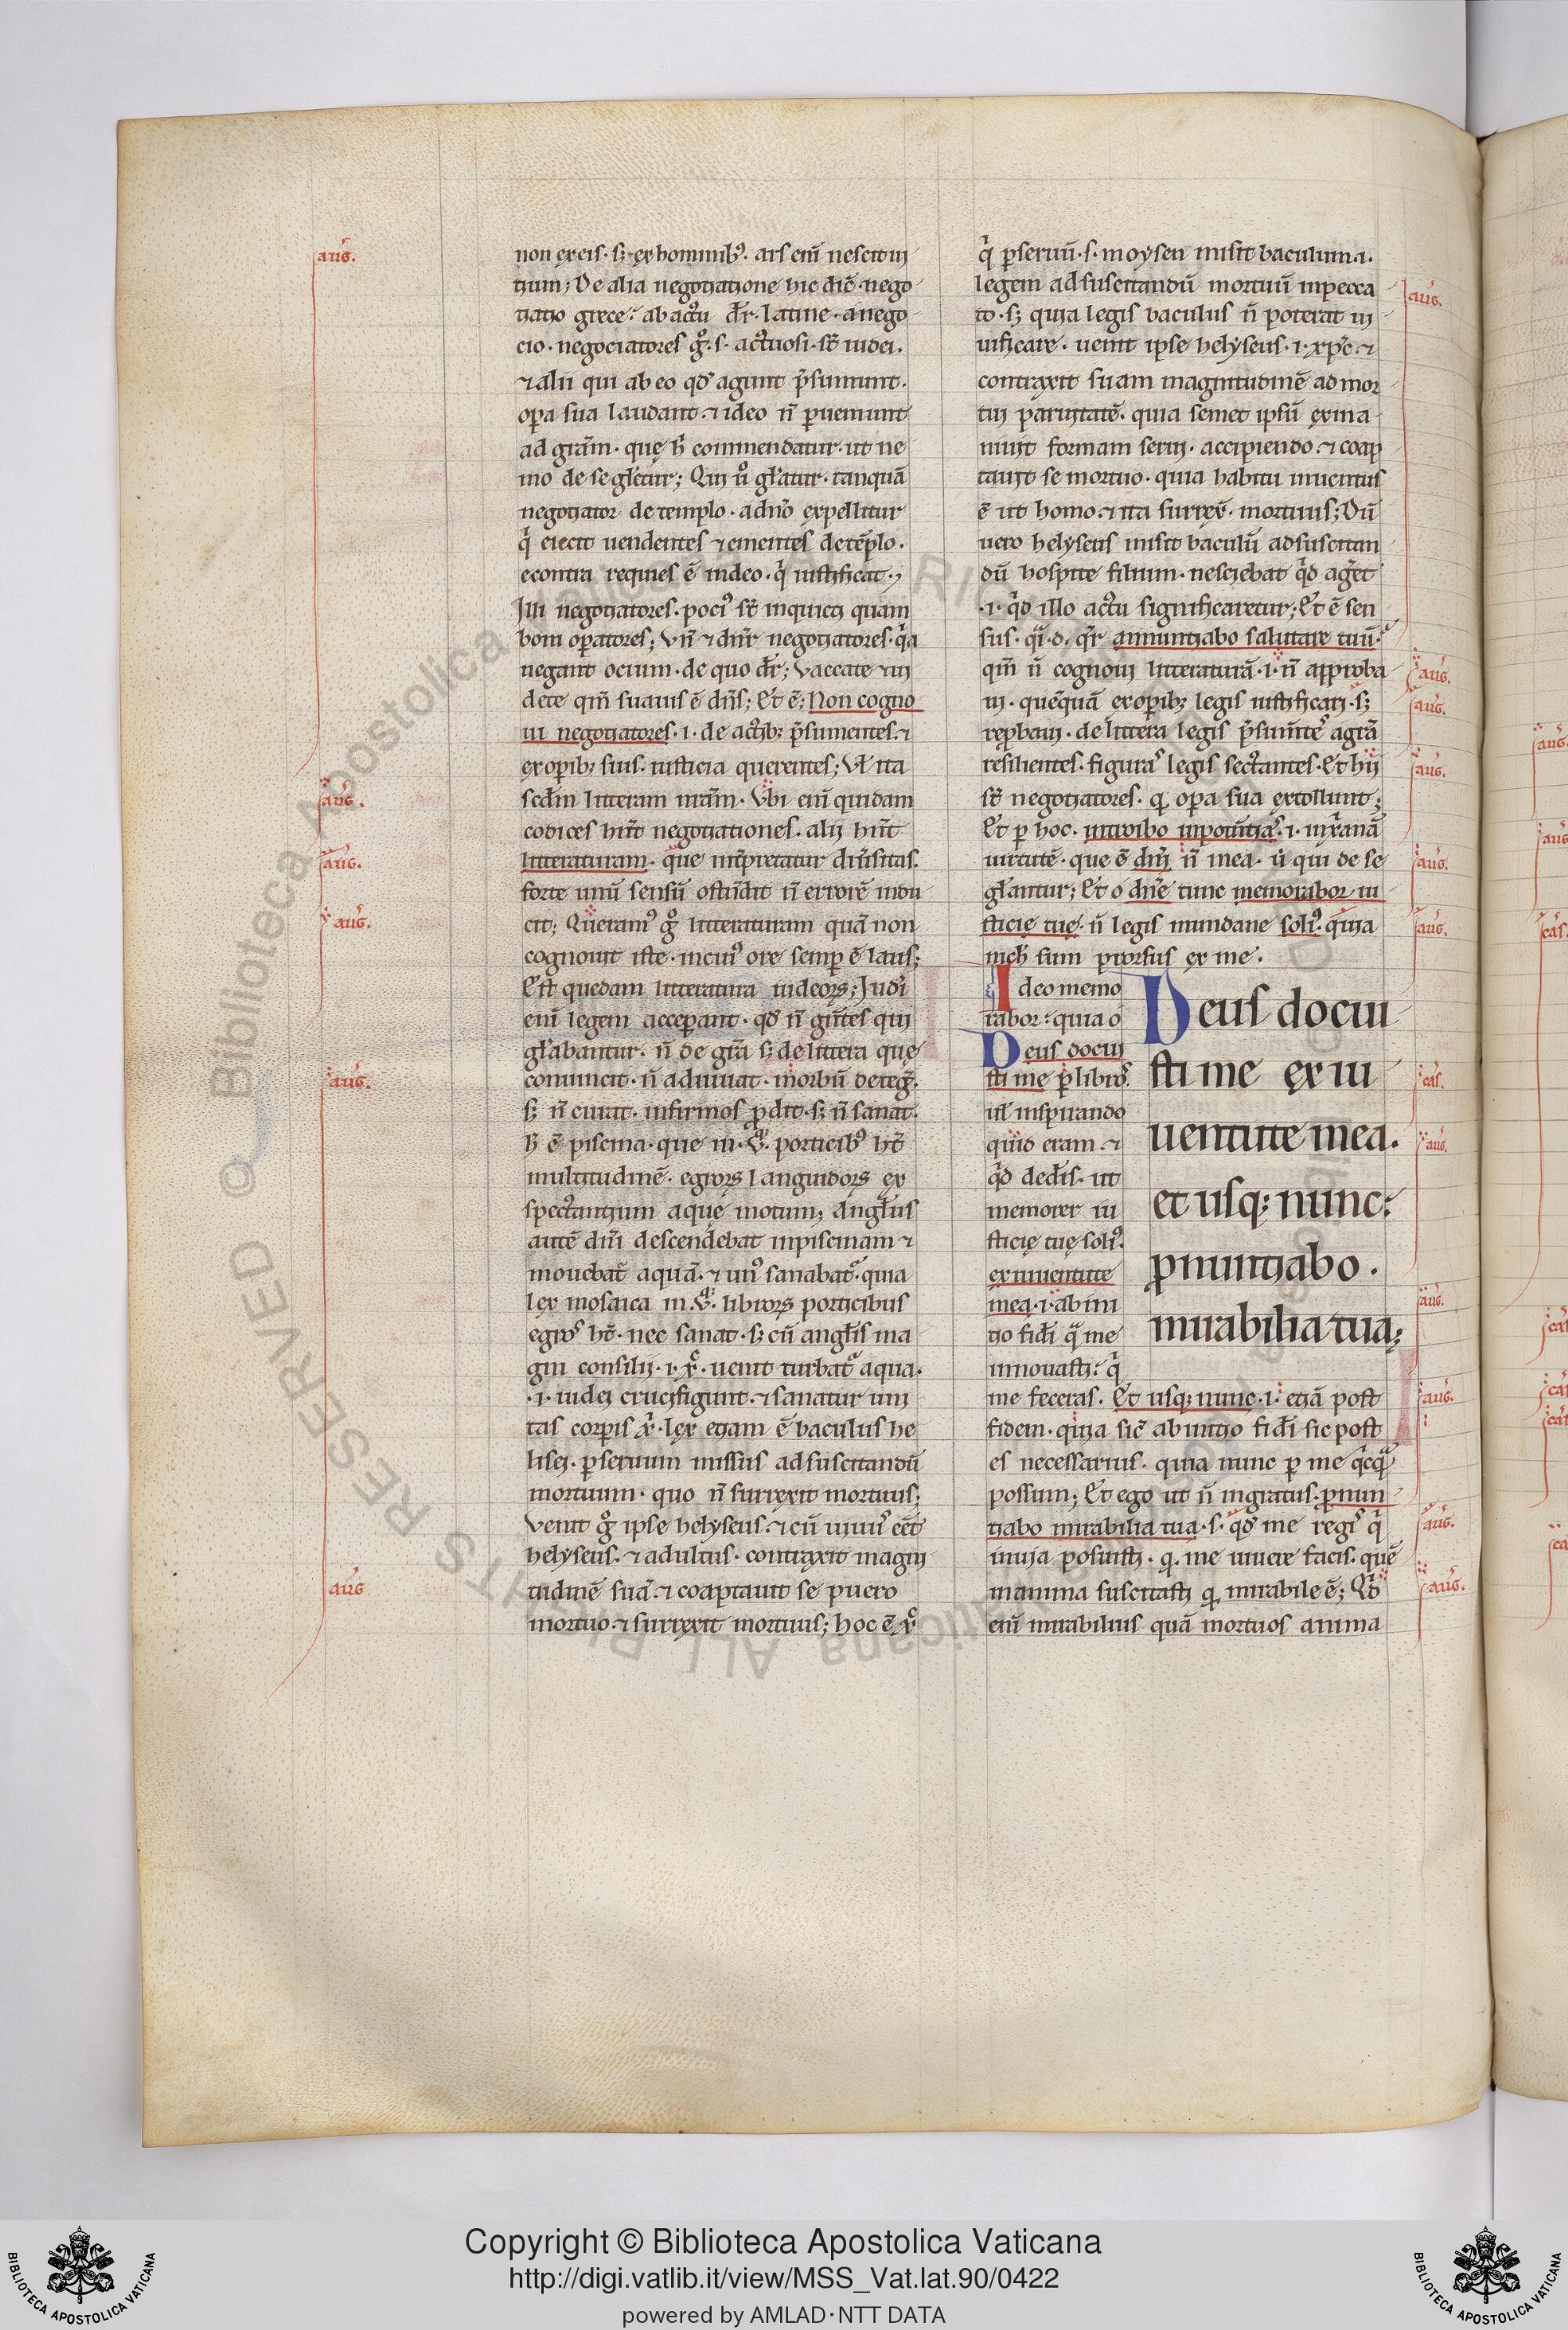 non ex eis· s; ex hominib9· ars eni̅ nescit ui
tium; De alia negotiatione hic dic̅· nego
tiatio grece· ab actu dr̅· latine· a nego
cio· negociatores g̊· s· actuosi· st̅ iudei·
⁊ alii qui ab eo qd̅ agunt p̅sumunt·
opa sua laudant· ⁊ ideo n̅ pueniunt
ad gra̅m· que h̅ commendatur· ut ne
mo de se glet̅ur; Qui u̅ gla̅tur· tanqua̅
negotiator de templo· a dn̅o expellitur
q̅ eiecit uendentes ⁊ ementes de te̅plo·
econtra requies e̅ in deo· q̅ iustificat·
Illi negotiatores· poci9 st̅ inquieti quam
boni opatores; Vn̅ ⁊ dn̅r negotiatores· q̅a
negant ocium· de quo dr̅; Vaccate ⁊ ui
dete qm̅ suauis e̅ dn̅s; Et e̅; Non cogno
ui negotiatores· i· de actib; p̅sumentes· ⁊
ex opib; suis· iusticia querentes; Vl̅ ita
scd̅m litteram nra̅m· Vbi eni̅ quidam
codices hn̅t negotiationes· alii hn̅t
litteraturam· que int̅pretatur diu̅sitas·
forte unu̅ sensu̅ oste̅ndit n̅ errore̅ indu
cit; Queram9 g̊ litteraturam qua̅ non
cognouit iste· in cui9 ore semp e̅ laus;
Est quedam litteratura iudeoꝝ; Iudi̅
eni̅ legem acceperant· qd̅ n̅ gn̅tes qui
gla̅bantur· n̅ de gra̅ s; de littera que
conuincit· n̅ adiuuat· morbu̅ deteg̅·
s; n̅ curat· infirmos pdit· s; n̅ sanat·
h̅ e̅ piscina· que in· v· porticib9 ht̅
multitudine̅· egroꝝ languidoꝝ ex
spectantium aque motum; Angl̅us
aute̅ dn̅i descendebat in piscinam ⁊
mouebat̅ aqua̅· ⁊ un9 sanabat̅· quia
lex mosaica in· v· libroꝝ porticibus
egros ht̅· nec sanat· s; cu̅ angl̅is ma
gni consilii· i· x̅· uenit turbat̅ aqua·
·i· iudei crucifigunt· ⁊ sanatur uni
tas corpis x̅· lex etiam e̅ baculus he
lisei· p seruum missus ad suscitandu̅
mortuum· quo n̅ surrexit mortuus;
Venit g̊ ipse helyseus· ⁊ cu̅ uiuis e̅et
helyseus· ⁊ adultus· contraxit magni
tudine̅ sua̅· ⁊ coaptauit se puero
mortuo· ⁊ surrexit mortuus; hoc e̅ x̅
q̅ p seruu̅· s· moysen misit baculum· i·
legem ad suscitandu̅ mortuu̅ in pecca
to· s; quia legis baculus n̅ poterat ui
uificare· uenit ipse helyseus· i· xpc̅· ⁊
contraxit suam magnitudine̅ ad mor
tui paruitate̅· quia semet ipsu̅ exina
niuit formam serui· accipiendo· ⁊ coap
tauit se mortuo· quia habitu inuentus
e̅ ut homo· ⁊ ita surrex̅· mortuus; Du̅
uero helyseus misit baculu̅ ad suscitan
du̅ hospite filium· nesciebat q̅d ag̅et
·i· q̅d illo actu significaretur; Et e̅ sen
sus· q̅i· d· q̅r annuntiabo salutare tuu̅·
qm̅ n̅ cognoui litteratura̅· i· n̅ approba
ui· que̅qua̅ ex opib; legis iustificari· s;
repbaui· de littera legis p̅sume̅tes a gra̅
resilientes· figuras legis sectantes· Et hii
st̅ negotiatores· q opa sua extollunt;
Et p hoc· introibo in potn̅tias· i· in xp̅iana̅
uirtute̅· que e̅ dn̅i n̅ mea· u̅ qui de se
gla̅ntur; Et o dn̅e tunc memorabor iu
sticie tue· n̅ legis mundane soli9· quia
nich̅ sum prorsus ex me·
Ideo memo
rabor· quia o
Deus docui
sti me p libros·
ul̅ inspirando
quid eram· ⁊
q̅d dedis̅· ut
memorer iu
sticie tue soli9·
ex iuuentute
mea· i· ab ini
tio fidi̅ q̅ me
innouasti· q̅
Deus docui
sti me ex iu
uentute mea·
et usq; nunc·
pnuntiabo·
mirabilia tua;
me feceras· Et usq; nunc· i· etia̅ post
fidem· quia sic̅ ab initio fidi̅ sic post
es necessarius· quia nunc p me q̅cq̅
possum; Et ego ut n̅ ingratus· pnun
tiabo mirabilia tua· s· qd̅ me regis q̅
in uia posuisti· q me uiuere facis· que̅
in anima suscitasti q mirabile e̅; Qd̅
eni̅ mirabilius qua̅ mortuos anima
aug̅·
aug̅·
aug̅·
aug̅·
aug̅·
aug̅
aug̅·
aug̅·
aug̅·
aug̅·
aug̅·
aug̅·
cas̅·
aug̅·
aug̅·
aug̅·
aug̅·
aug̅·
© Biblioteca Apostolica Vaticana ALL RIGHTS RESERVED
BIBLIOTECA APOSTOLICA VATICANA
Copyright © Biblioteca Apostolica Vaticana
http://digi.vatlib.it/view/MSS_Vat.lat.90/0422
powered by AMLAD·NTT DATA
BIBLIOTECA APOSTOLICA VATICANA